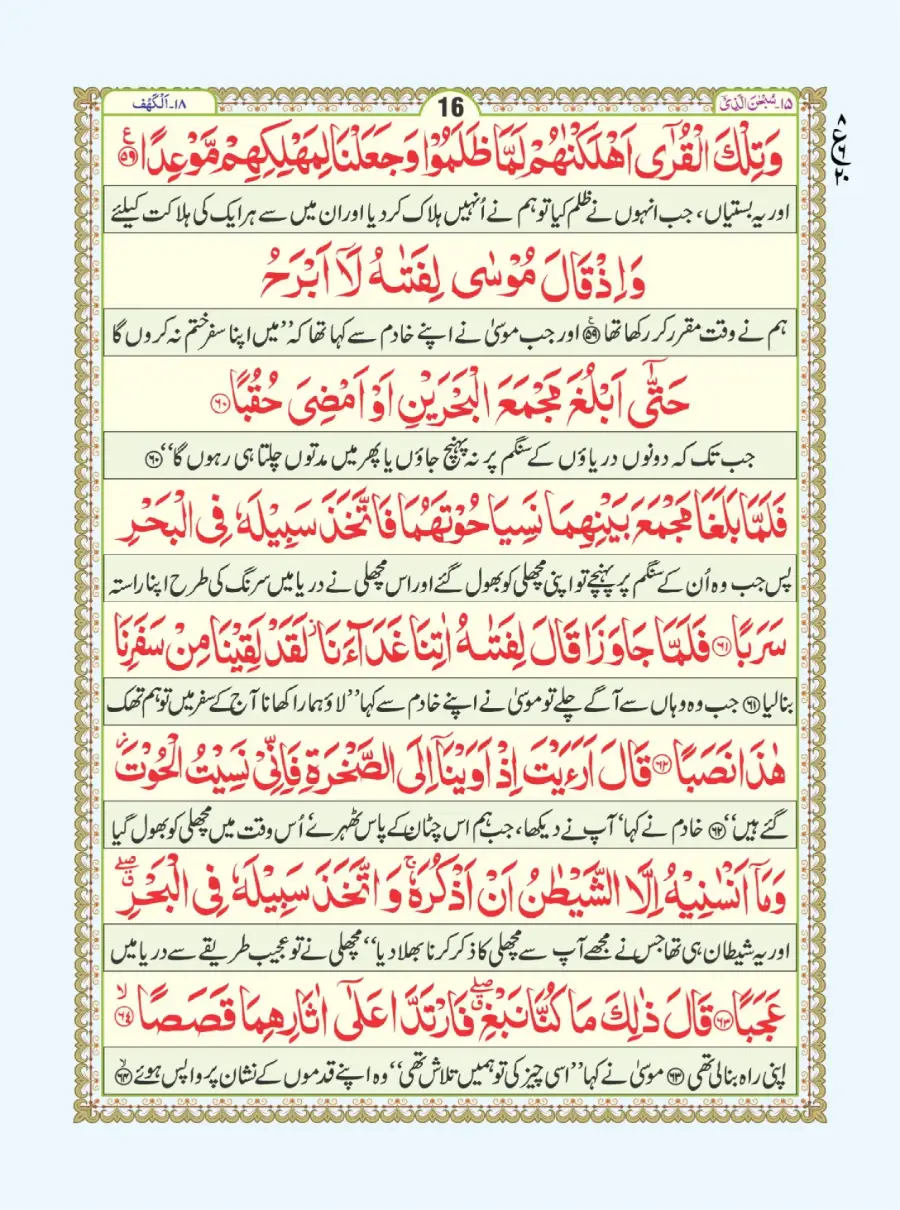 ١٥۔ سُبْحٰنَ الَّذِیْۤ
16
١٨۔اَلْکَهْف
ع
٨
٦
٢٠
وَتِلْكَ الْقُرٰٓى اَهْلَكْنٰهُمْ لَمَّا ظَلَمُوْا وَ جَعَلْنَا لِمَهْلِكِهِمْ مَّوْعِدًا ۟ع ٥٩
اور یہ بستیاں، جب انہوں نے ظلم کیا تو ہم نے اُنہیں ہلاک کر دیا اور ان میں سے ہر ایک کی ہلاکت کیلئے
وَ اِذْ قَالَ مُوْسٰى لِفَتٰىهُ لَاۤ اَبْرَحُ
ہم نے وقت مقرر کر رکھا تھا ۵۹ اور جب موسیٰ نے اپنے خادم سے کہا تھا کہ ’’میں اپنا سفر ختم نہ کروں گا
حَتّٰۤى اَبْلُغَ مَجْمَعَ الْبَحْرَيْنِ اَوْ اَمْضِىَ حُقُبًا ٦٠
جب تک کہ دونوں دریاؤں کے سنگم پر نہ پہنچ جاؤں یا پھر میں مدتوں چلتا ہی رہوں گا‘‘ ۶۰
فَلَمَّا بَلَغَا مَجْمَعَ بَيْنِهِمَا نَسِيَا حُوْتَهُمَا فَاتَّخَذَ سَبِيْلَهٗ فِى الْبَحْرِ
پس جب وہ اُن کے سنگم پر پہنچے تو اپنی مچھلی کو بھول گئے اور اس مچھلی نے دریا میں سرنگ کی طرح اپنا راستہ
سَرَبًا ٦١ فَلَمَّا جَاوَزَا قَالَ لِفَتٰىهُ اٰتِنَا غَدَآءَنَا ز لَقَدْ لَقِيْنَا مِنْ سَفَرِنَا
بنا لیا ۶۱ جب وہ وہاں سے آگے چلے تو موسیٰ نے اپنے خادم سے کہا ’’لاؤ ہمارا کھانا آج کے سفر میں تو ہم تھک
هٰذَا نَصَبًا ٦٢ قَالَ اَرَءَيْتَ اِذْ اَوَيْنَاۤ اِلَى الصَّخْرَةِ فَاِنِّىْ نَسِيْتُ الْحُوْتَ ز
گئے ہیں‘‘ ۶۲ خادم نے کہا’ آپ نے دیکھا، جب ہم اس چٹان کے پاس ٹھہرے‘ اُس وقت میں مچھلی کو بھول گیا
وَمَاۤ اَنْسٰنِيْهُ اِلَّا الشَّيْطٰنُ اَنْ اَذْكُرَهٗ ج وَ اتَّخَذَ سَبِيْلَهٗ فِى الْبَحْرِ صلے ق
اور یہ شیطان ہی تھا جس نے مجھے آپ سے مچھلی کا ذکر کرنا بھلا دیا‘‘ مچھلی نے تو عجیب طریقے سے دریا میں
عَجَبًا ٦٣ قَالَ ذٰلِكَ مَا كُنَّا نَبْغِ صلے ق فَارْتَدَّا عَلٰٓى اٰثَارِهِمَا قَصَصًا لا ٦٤
اپنی راہ بنالی تھی ۶۳ موسیٰ نے کہا ’’اسی چیز کی تو ہمیں تلاش تھی‘‘ وہ اپنے قدموں کے نشان پر واپس ہوئے لا ۶۴